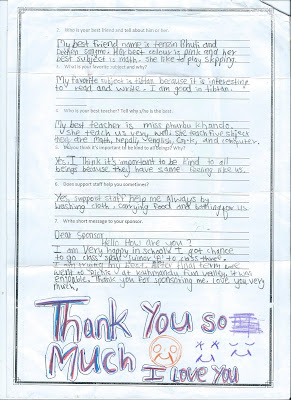 2. Who is your best friend and tell about him or her.
My best friend name is Tenzin Phufi and
Her best colour is pink and her
best subject is math. she like to play skipping.
What is your favorite subject and why?
My favorite subject is tibtan because it is interesting
to read and write. I am good in tibtan.
Who is your best teacher? Tell why s/he is the best.
My best teacher is miss phurbu khando.
she teach us very well. she teach five subject
they are math, nepali, English, and computer.
Do you think it's important to be kind to all beings? Why?
Yes, I think it's important to be kind to all
beings because they have same feeling like us.
6. Does support staff help you sometimes?
Yes, support staff help me always by
washing cloth, carrying food and for us.
7. Write short message to your sponsor.
Dear Sponsor,
Hello How are you?
I am very happy in school. I got chance
to go class upper to class three.
final term
went to picnic at kathmandu fun valley. it was
enjoyable. Thank you for sponsoring me. Love you very
much.
Thank You so
Much
I Love You